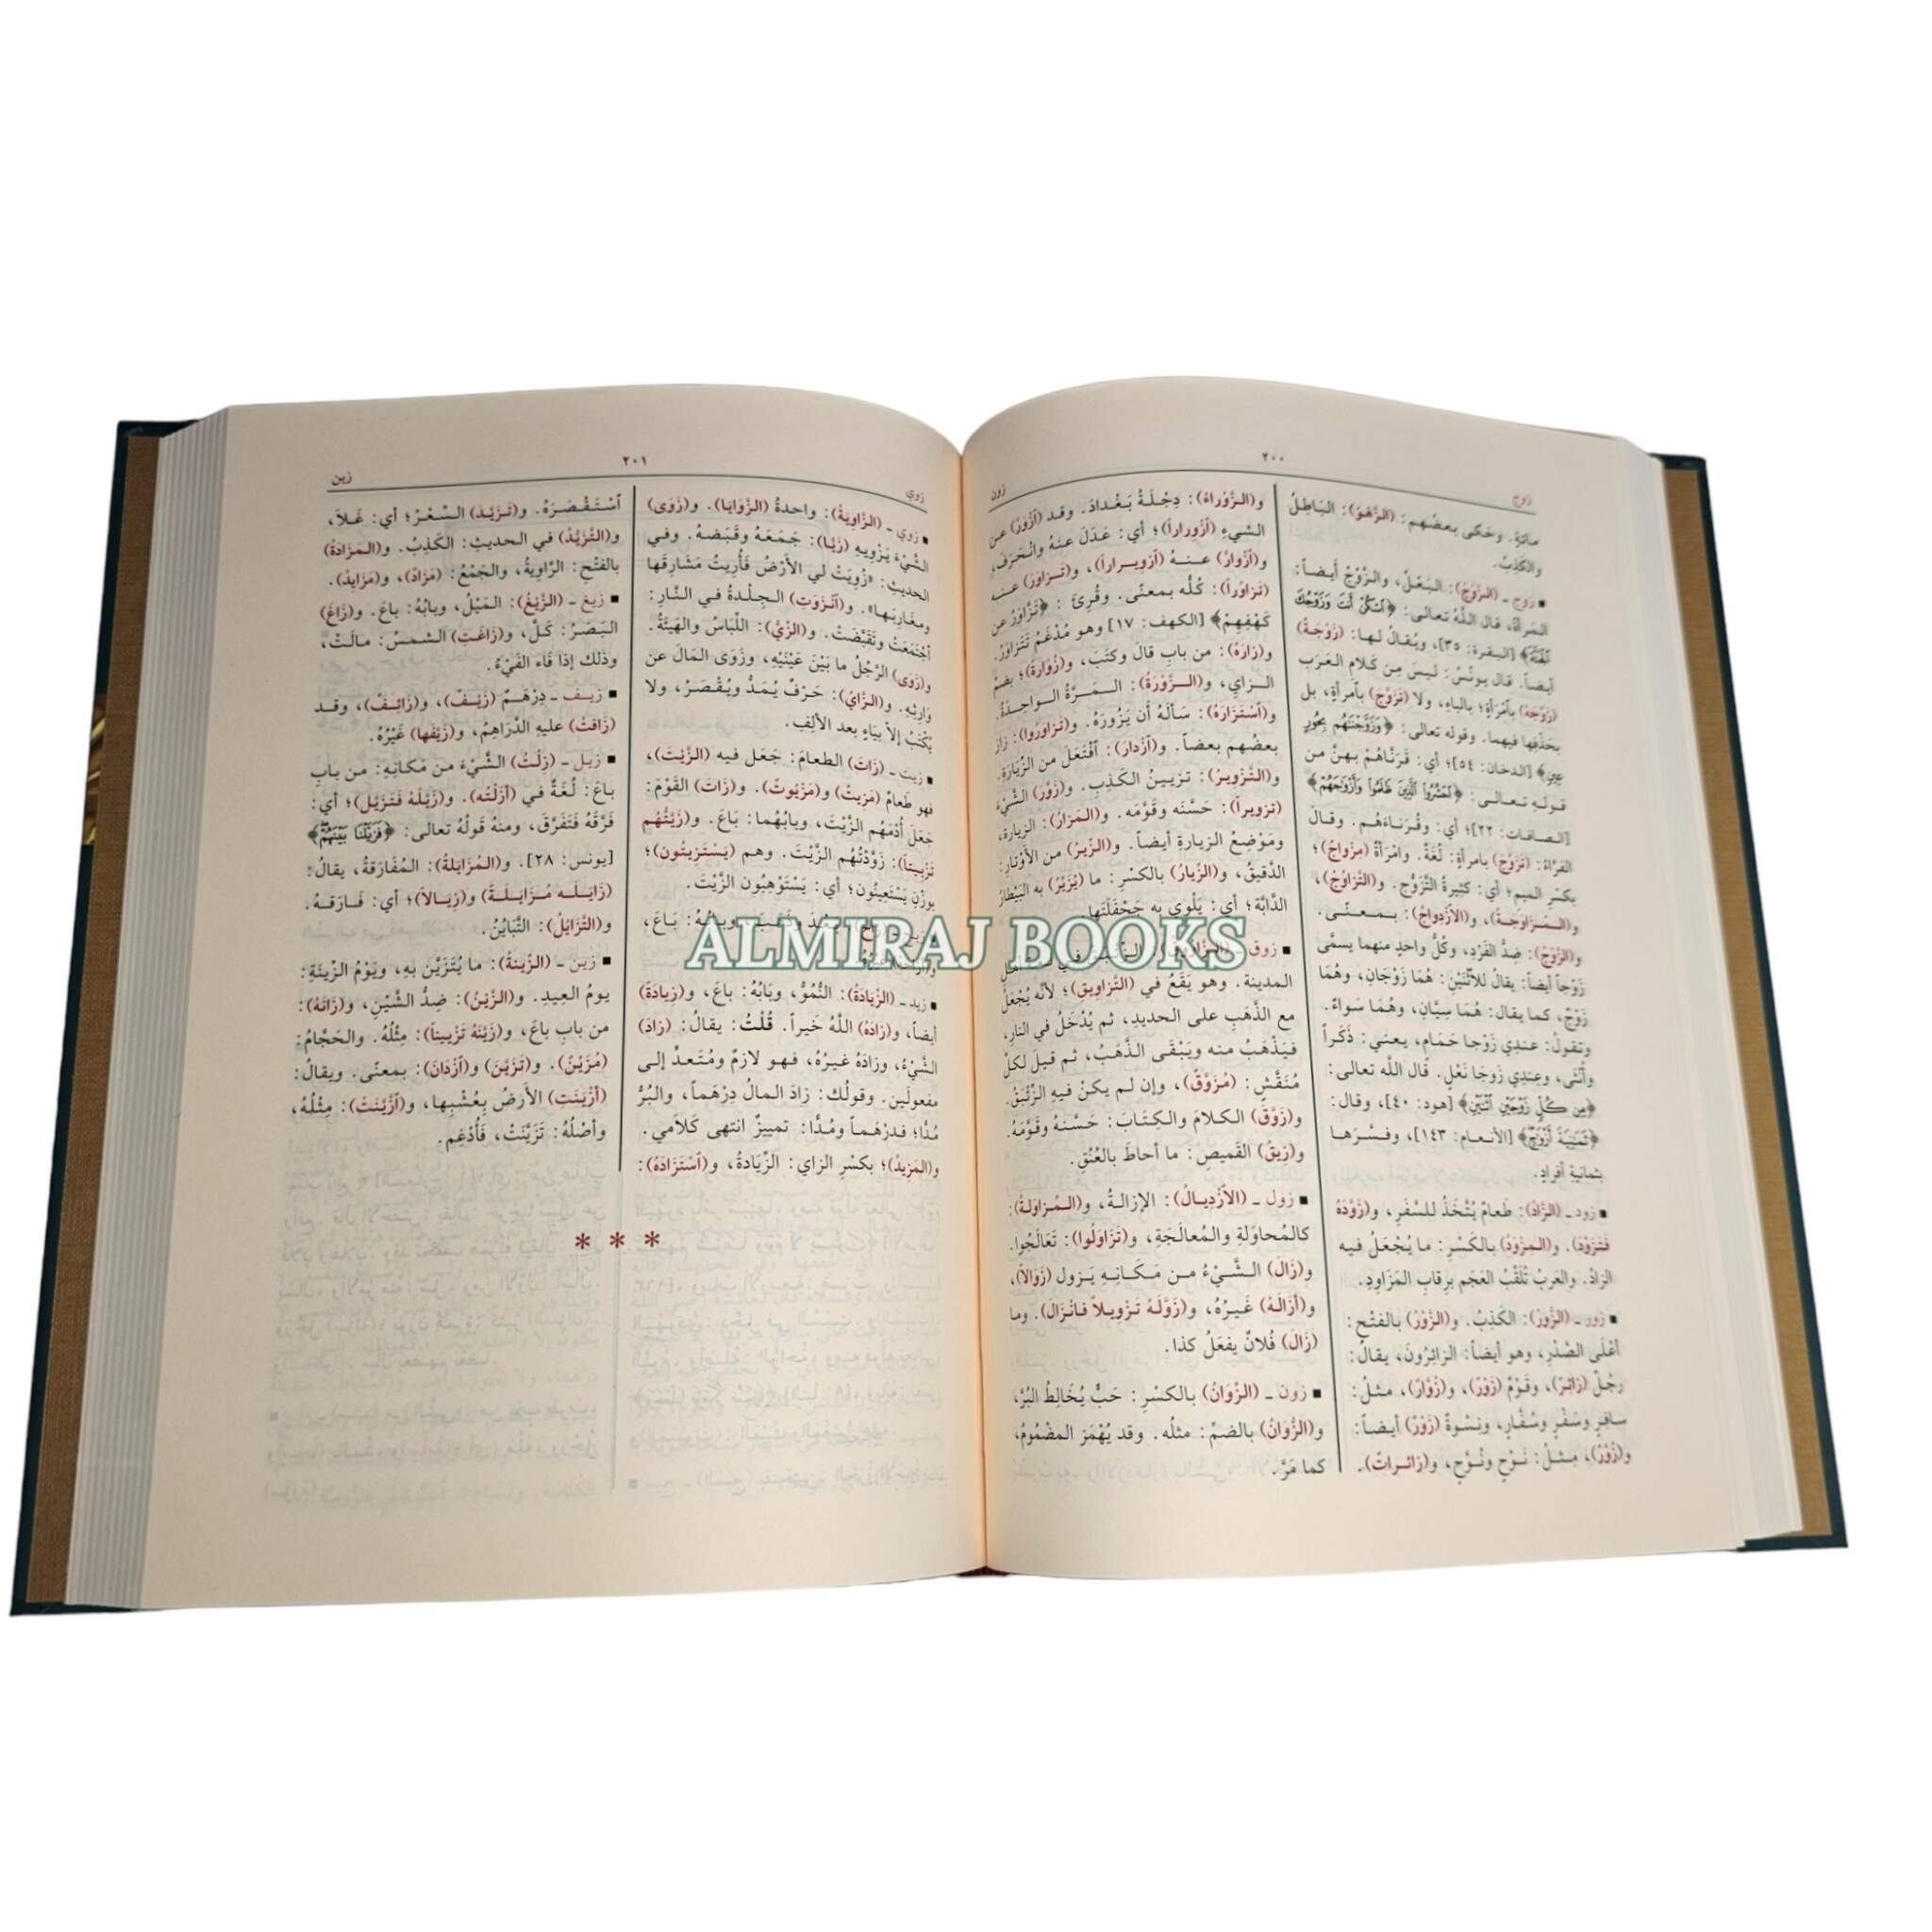 زوج
٢٠٠
زون
مائةٍ. وحَكى بعضُهم: (الزَّهْوَ): البَاطِلُ
والكَذِبُ.
■ زوج ـ (الزَّوْجُ): البَعْلُ، والزَّوْجُ أيضاً:
المَرأةُ، قال اللَّهُ تعالى: ﴿ٱسْكُنْ أَنتَ وَزَوْجُكَ
ٱلْجَنَّةَ﴾ [البقرة: ٣٥]، ويُقالُ لها: (زَوْجَةٌ)
أيضاً. قال يونُسُ: ليسَ مِن كَلامِ العَرَب
(زَوَّجَهُ) بٱمرَأةٍ؛ بالباءِ، ولا (تَزَوَّجَ) بٱمرأةٍ، بل
بحَذفِها فيهما. وقوله تعالى: ﴿وَزَوَّجْنَٰهُم بِحُورٍ
عِينٍ﴾ [الدخان: ٥٤]؛ أي: قَرَنَّاهُمْ بهنَّ من
قولهِ تعالى: ﴿ٱحْشُرُوا ٱلَّذِينَ ظَلَمُوا وَأَزْوَٰجَهُمْ﴾
[الصافات: ٢٢]؛ أي: وقُرَناءَهُم. وقالَ
الفرَّاءُ: (تَزَوَّجَ) بامرأةٍ: لُغَةٌ. وامْرَأةٌ (مِزْواجٌ)؛
بكسْرِ الميم؛ أي: كثيرةُ التَّزَوُّجِ. و(التَّزَاوُجُ)،
و(المُزَاوَجَةُ)، و(الازْدِواجُ): بمعنًى.
و(الزَّوْجُ): ضِدُّ الفَرْدِ، وكُلُّ واحدٍ منهما يسمَّى
زَوْجاً أيضاً: يقالُ للاثْنَيْنِ: هُمَا زَوْجَانِ، وهُمَا
زَوْجٌ، كما يقال: هُمَا سِيَّانِ، وهُمَا سَواءٌ.
وتقولُ: عندِي زَوْجا حَمَام، يعني: ذَكَراً
وأُنْثَى، وعِندِي زَوجَا نَعْلٍ. قال الله تعالى:
﴿مِن كُلٍّ زَوْجَيْنِ ٱثْنَيْنِ﴾ [هود: ٤٠]، وقال:
﴿ثَمَٰنِيَةَ أَزْوَٰجٍ﴾ [الأنعام: ١٤٣]، وفسَّرَها
بثمانيةِ أفرادٍ.
■ زود ـ (الزَّادُ): طَعامٌ يُتَّخَذُ للسَّفَرِ، و(زَوَّدَهُ
فَتَزَوَّدَ). و(المِزْوَدُ) بالكَسْرِ: ما يُجْعَلُ فيه
الزادُ. والعَربُ تُلَقِّبُ العَجَم برِقابِ المَزَاوِدِ.
■ زور ـ (الزُّورُ): الكَذِبُ. و(الزَّوْرُ) بالفَتْحِ:
أعْلَى الصَّدْرِ، وهو أيضاً: الزائِرُونَ، يقالُ:
رجُلٌ (زائِرٌ)، وقَوْمٌ (زَوْرٌ)، و(زُوَّارٌ)، مثلُ:
سافِرٍ وسَفْرٍ وسُفَّارٍ، ونسْوةٌ (زَوْرٌ) أيضاً:
و(زُوَّرٌ)، مِثلُ: نَوْحٍ ونُوَّحٍ، و(زائراتٌ).
و(الزَّوْراءُ): دِجْلَةُ بَغْدادَ. وقد (ٱزْوَرَّ) عن
الشيءِ (ٱزْوِراراً)؛ أي: عَدَلَ عنهُ وانْحَرَفَ،
و(ٱزْوَارَّ) عنهُ (ٱزْوِيراراً)، و(تَزَاوَرَ) عنه
(تَزَاوُراً): كُلُّه بمعنًى. وقُرِئَ: ﴿تَزَّاوَرُ عن
كَهْفِهِمْ﴾ [الكهف: ١٧] وهو مُدْغَمُ تَتَزَاوَرُ.
و(زارَهُ): من بابِ قالَ وكتَبَ، و(زُوَارَةً)؛ بضمِّ
الزاي، و(الزَّوْرَةُ): المَرَّةُ الواحدةُ.
و(ٱسْتَزارَهُ): سَألهُ أن يَزُورَهُ. و(تَزاوَرُوا): زارَ
بعضُهم بعضاً. و(ٱزْدارَ): ٱفْتَعَلَ من الزِّيارَةِ.
و(التَّزْوِيرُ): تزيينُ الكَذِبِ. و(زَوَّرَ) الشَّيْءَ
(تزويراً): حَسَّنَه وقَوَّمَه. و(المَزارُ): الزيارة،
ومَوْضِعُ الزيارةِ أيضاً. و(الزِّيرُ) من الأوْتارِ:
الدَّقيقُ، و(الزِّيَارُ) بالكَسْرِ: ما (يُزَيِّرُ) به البَيْطارُ
الدَّابَّة؛ أي: يَلْوِي به جَحْفَلَتَها.
■ زوق
المدينة. وهو يَقَعُ في (التَّزاوِيق)؛ لأنَّه يُجْعَلُ
مع الذَّهَبِ على الحديدِ، ثم يُدْخَلُ في النارِ،
فيَذْهَبُ منه ويَبْقَى الذَّهَبُ، ثم قيلَ لكلِّ
مُنَقَّشٍ: (مُزَوَّقٌ)، وإن لم يكنْ فيهِ الزِّئْبَقُ.
و(زَوَّقَ) الكلامَ والكِتَابَ: حَسَّنَهُ وقَوَّمَهُ.
و(زِيقُ) القَميصِ: ما أحاطَ بالعُنُقِ.
■ زول ـ (الازْدِيالُ): الإزالةُ، و(المُزاوَلةُ):
كالمُحاوَلةِ والمُعالَجَةِ، و(تَزَاوَلُوا): تَعَالَجُوا.
و(زَالَ) الشَّيْءُ من مَكَانِهِ يَزول (زَوَالاً)،
و(أزَالَهُ) غَيرُهُ، و(زَوَّلَهُ تَزْوِيلاً فانْزَالَ). وما
(زَالَ) فُلانٌ يفعَلُ كذا.
■ زون ـ (الزِّوَانُ) بالكسْرِ: حَبٌّ يُخَالِطُ البُرَّ،
و(الزُّوَانُ) بالضمِّ: مثلُه. وقد يُهْمَز المضْمُومُ،
كما مَرَّ.
زوي
٢٠١
زين
■ زوي ـ (الزَّاوِيَةُ): واحدةُ (الزَّوَايَا). و(زَوَى)
الشَّيْءَ يَزْوِيهِ (زَيًّا): جَمَعَهُ وقَبَضَهُ. وفي
الحديثِ: «زُوِيَتْ لي الأرْضُ فَأُرِيتُ مَشَارِقَها
ومَغَارِبَها». و(ٱنْزَوَتِ) الجِلْدةُ في النَّارِ:
ٱجْتَمَعَتْ وتَقَبَّضَتْ. و(الزِّيُّ): اللِّبَاسُ والهَيْئَةُ.
و(زَوَى) الرَّجُلُ ما بَيْنَ عَيْنَيْهِ، وزَوَى المَالَ عن
وَارِثِهِ. و(الزَّايُ): حَرْفٌ يُمَدُّ ويُقْصَرُ، ولا
يُكْتَبُ إلاَّ بيَاءٍ بعد الألِفِ.
■ زيت ـ (زَاتَ) الطعامَ: جَعَل فيه (الزَّيْتَ)،
فهو طَعامٌ (مَزِيتٌ) و(مَزْيُوتٌ). و(زَاتَ) القَوْمَ:
جَعَلَ أُدْمَهُم الزَّيْتَ، وبابُهُما: بَاعَ. و(زَيَّتَهُم
تَزْيِيتاً): زَوَّدْتُهُم الزَّيْتَ. وهم (يَسْتَزِيتُون)؛
بوزْنِ يَسْتَعِينُون؛ أي: يَسْتَوْهِبُون الزَّيْتَ.
ALMIRAJ BOOKS
■ زيد ـ (الزِّيَادَةُ): النُّمُوُّ، وبَابُهُ: باعَ، و(زِيادَةً)
أيضاً، و(زادَهُ) اللَّهُ خَيراً. قُلْتُ: يقالُ: (زادَ)
الشَّيْءُ، وزادَهُ غيرُهُ، فهو لازمٌ ومُتَعدٍّ إلى
مفعولَين. وقولُك: زادَ المالُ دِرْهَماً، والبُرُّ
مُدًّا؛ فدرْهَماً ومُدًّا: تمييزٌ انتهى كَلامي.
و(المَزِيدُ)؛ بكسْرِ الزاي: الزِّيَادةُ، و(ٱسْتَزَادَهُ):
ٱسْتَقْصَرَهُ. و(تَزَيَّدَ) السِّعْرُ؛ أي: غَلاَ،
و(التَّزَيُّدُ) في الحديثِ: الكَذِبُ. و(المَزَادَةُ)
بالفَتْحِ: الرَّاوِيةُ، والجَمْعُ: (مَزَادٌ)، و(مَزَايِدُ).
■ زيغ ـ (الزَّيْغُ): المَيْلُ، وبابُهُ: باعَ. و(زَاغَ)
البَصَرُ: كَلَّ، و(زَاغَتِ) الشمسُ: مالَتْ،
وذَلك إذا فَاءَ الفَيْءُ.
■ زيف ـ دِرْهَمٌ (زَيْفٌ)، و(زَائِفٌ)، وقد
(زَافتْ) عليهِ الدَّراهِمُ، و(زَيَّفَها) غَيْرُهُ.
■ زيل ـ (زِلْتُ) الشَّيْءَ من مَكَانِهِ: من بابِ
باعَ: لُغَةٌ في (أزَلْتُه). و(زَيَّلَهُ فَتَزَيَّل)؛ أي:
فَرَّقَهُ فَتَفَرَّقَ، ومنهُ قَولُهُ تعالى: ﴿فَزَيَّلْنَا بَيْنَهُمْ﴾
[يونس: ٢٨]. و(المُزَايَلةُ): المُفَارَقةُ، يقالُ:
(زَايَلَه مُزَايَلَةً) و(زِيَالاً)؛ أي: فَارَقَهُ.
و(التَّزَايُلُ): التَّبَايُنُ.
■ زين ـ (الزِّينةُ): ما يُتَزَيَّن بهِ، ويَوْمُ الزِّينَةِ:
يومُ العِيدِ. و(الزَّيْنُ): ضِدُّ الشَّيْنِ، و(زَانَهُ):
من بابِ باعَ، و(زَيَّنَهُ تَزْيِيناً): مِثْلُهُ. والحَجَّامُ:
(مُزَيِّنٌ). و(تَزَيَّنَ) و(ٱزْدَانَ): بمعنًى. ويقالُ:
(أَزْيَنَتِ) الأرَضُ بِعُشْبِها، و(ٱزَّيَّنَتْ): مِثْلُهُ،
وأصْلُهُ: تَزَيَّنَتْ، فَأُدْغِمَ.
* * *